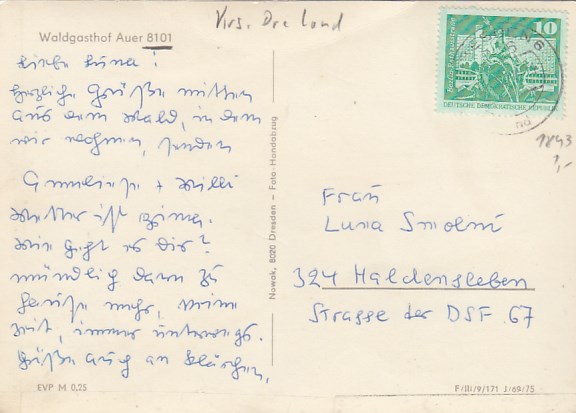 Krs. Dre Land
Waldgasthof Auer 8101
10
DEUTSCHE DEMOKRATISCHE REPUBLIK
Liebe Luna!
Herzliche Grüße mitten
aus dem Wald, in dem
wir wohnen, senden
+ Willi
Wetter ist prima.
Wie geht es Dir?
mündlich dann zu
Hause mehr, keine
Zeit, immer unterwegs.
Grüße auch an Klärchen.
1843
?,-
Frau
Luna Smolni
324 Haldensleben
Strasse der DSF 67
Nowak, 8020 Dresden - Foto-Handabzug
EVP M 0,25
F/III/9/171 J/69/75